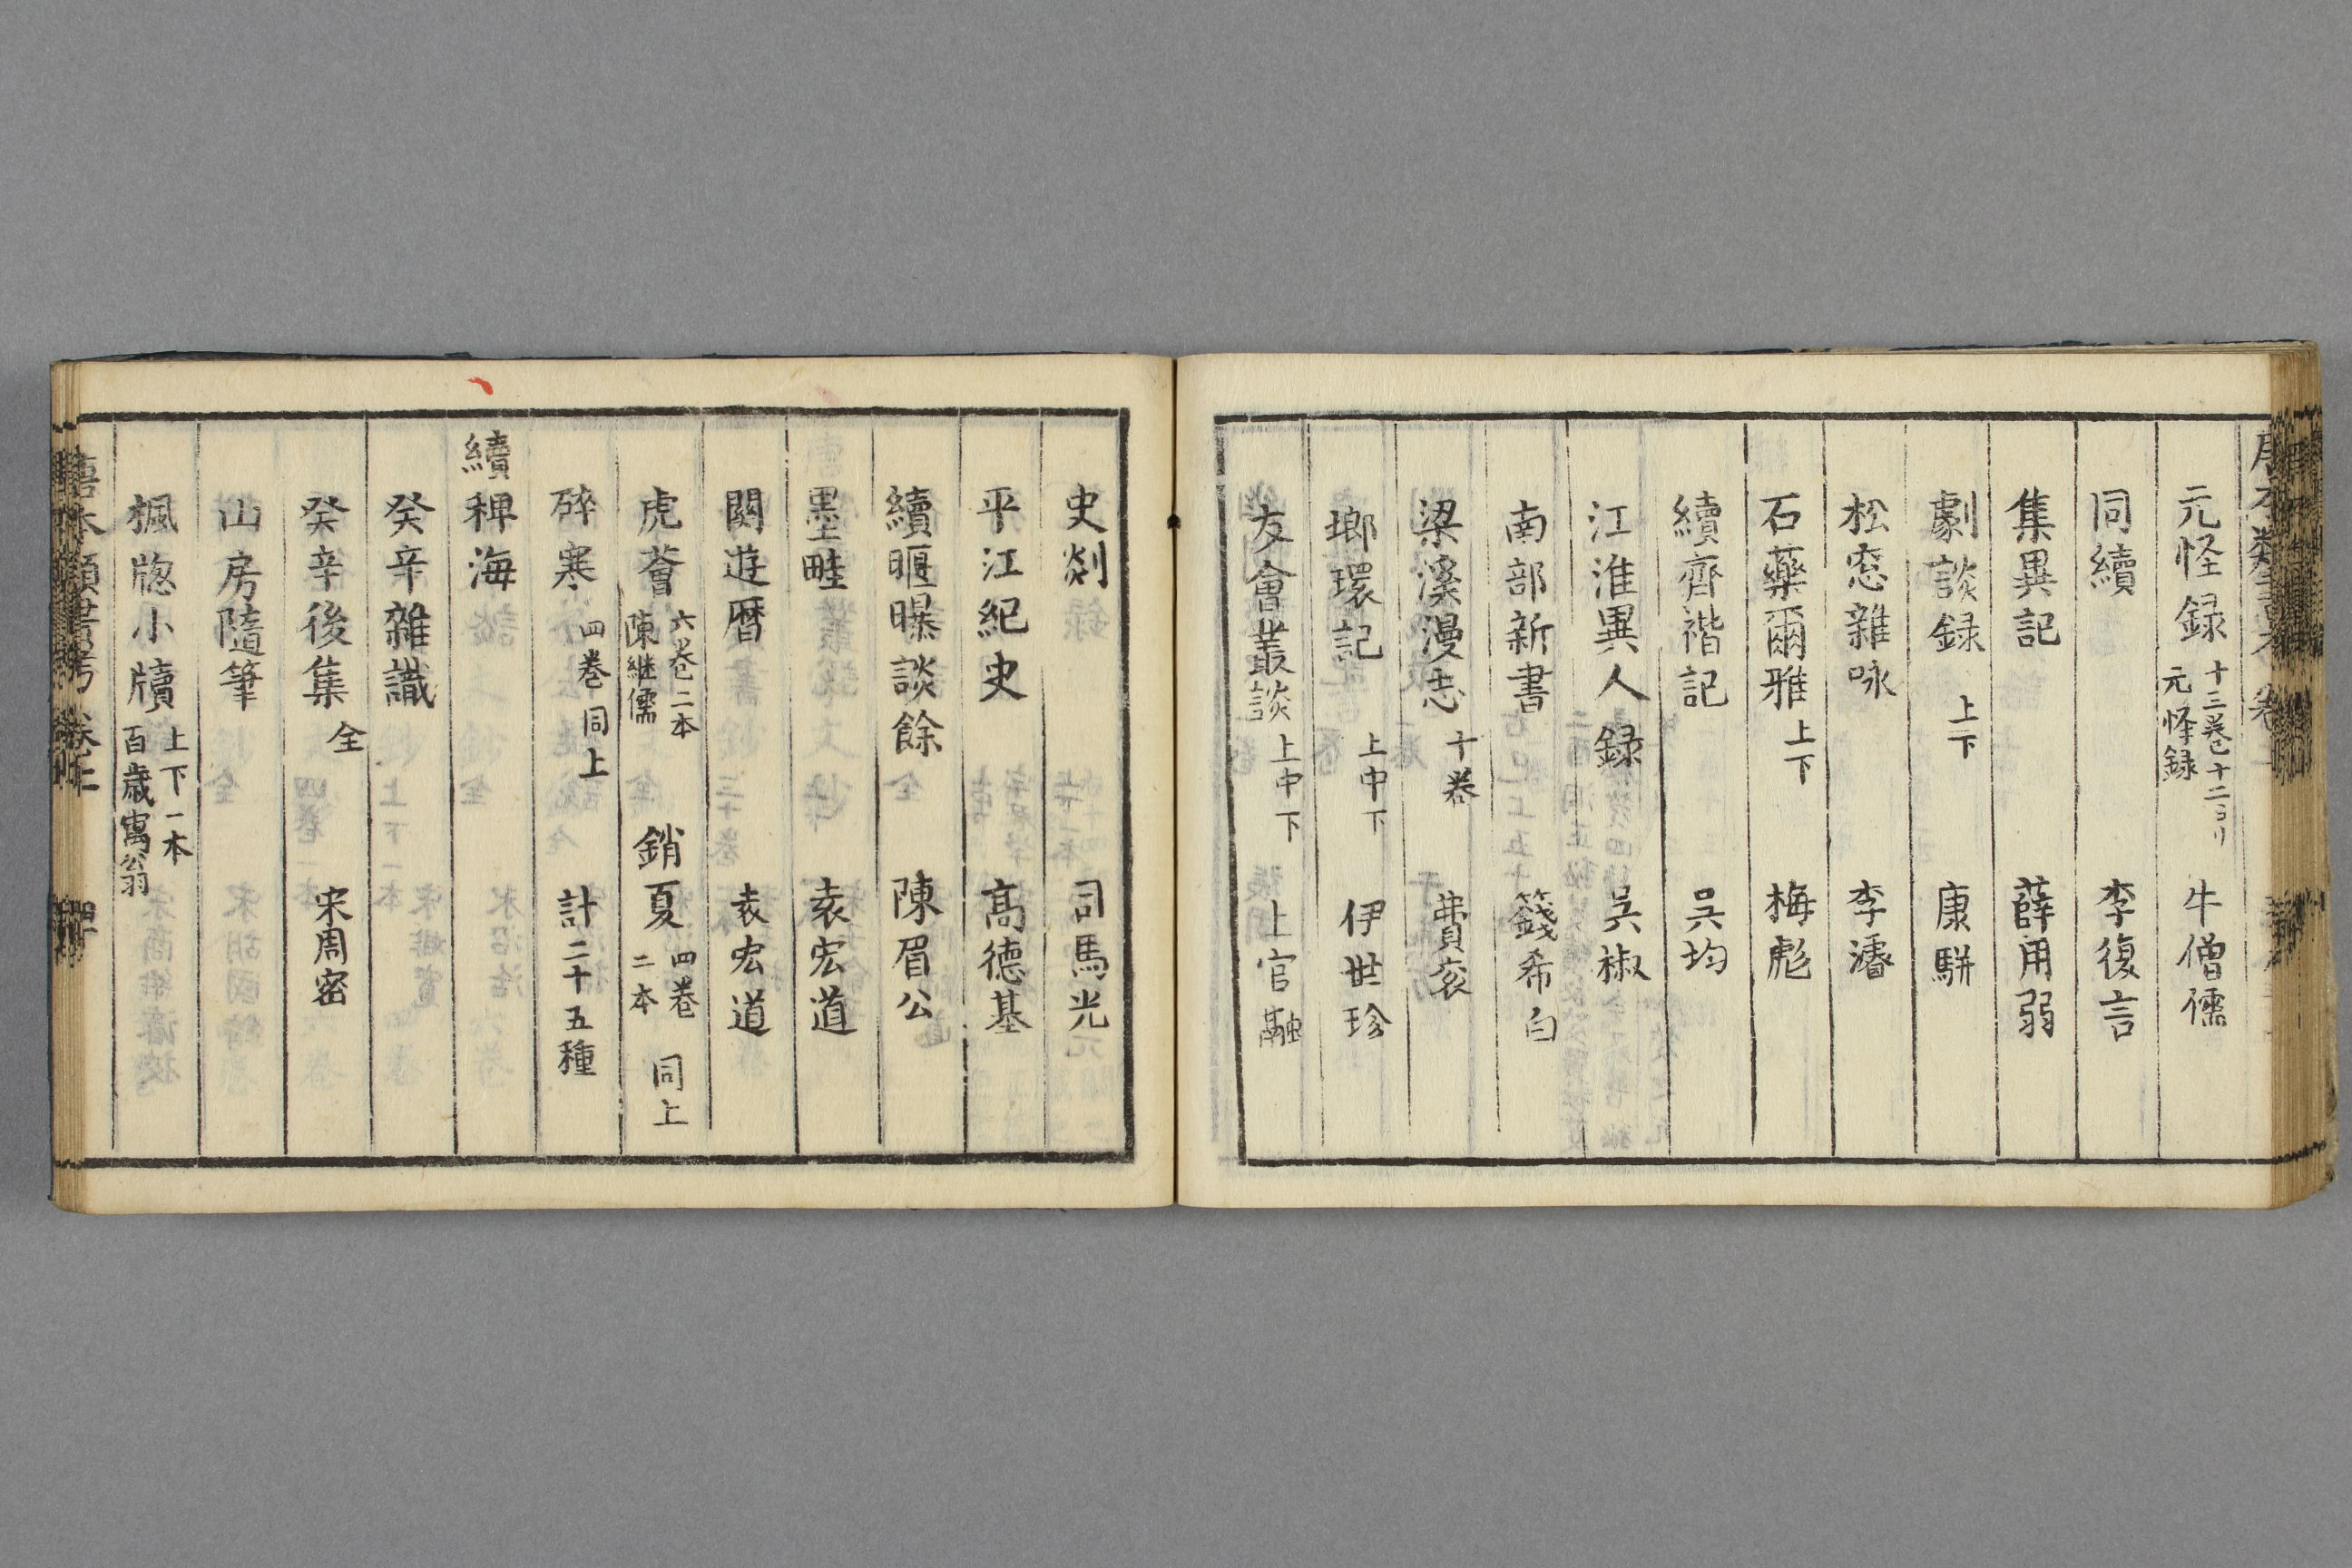 元怪録 十三巻十二ヨリ 元怪録 牛僧儒
同續 李復言
集異記 薛用弱
劇談録 上下 康駢
松窓雜咏 李濬
石藥爾雅 上下 梅彪
續齊諧記 呉均
江淮異人録 呉椒
南部新書 籛希白
梁溪漫志 十巻 費袞
瑯環記 上中下 伊世珍
友會叢談 上中下 上官融
史剡 司馬光
平江紀史 高德基
續㫲曝談餘 陳眉公
墨畦 袁宏道
閼遊暦 袁宏道
虎薈 六巻二本 陳継儒 銷夏 四巻二本 同上
碎寒 四巻 同上 計二十五種
續稗海
癸辛雜識
癸辛後集 全 宋周密
山房隨筆
楓牎小牘 上下一本 百歳寓翁
唐本類書考 巻上